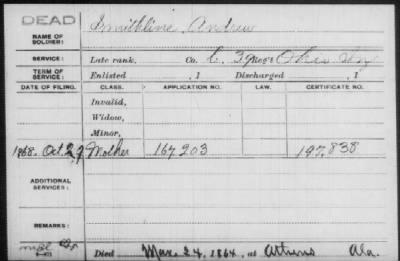 DEAD
NAME OF SOLDIER: Smithline, Andrew
SERVICE: Late rank, Co. C, 3 Reg't Ohio
TERM OF SERVICE: Enlisted , 1 Discharged , 1
DATE OF FILING. CLASS. APPLICATION NO. LAW. CERTIFICATE NO.
Invalid,
Widow,
Minor,
1868. Oct. 29 Mother 167203 197.838
ADDITIONAL SERVICES:
REMARKS:
Died Mar. 24, 1864, at Athens Ala.